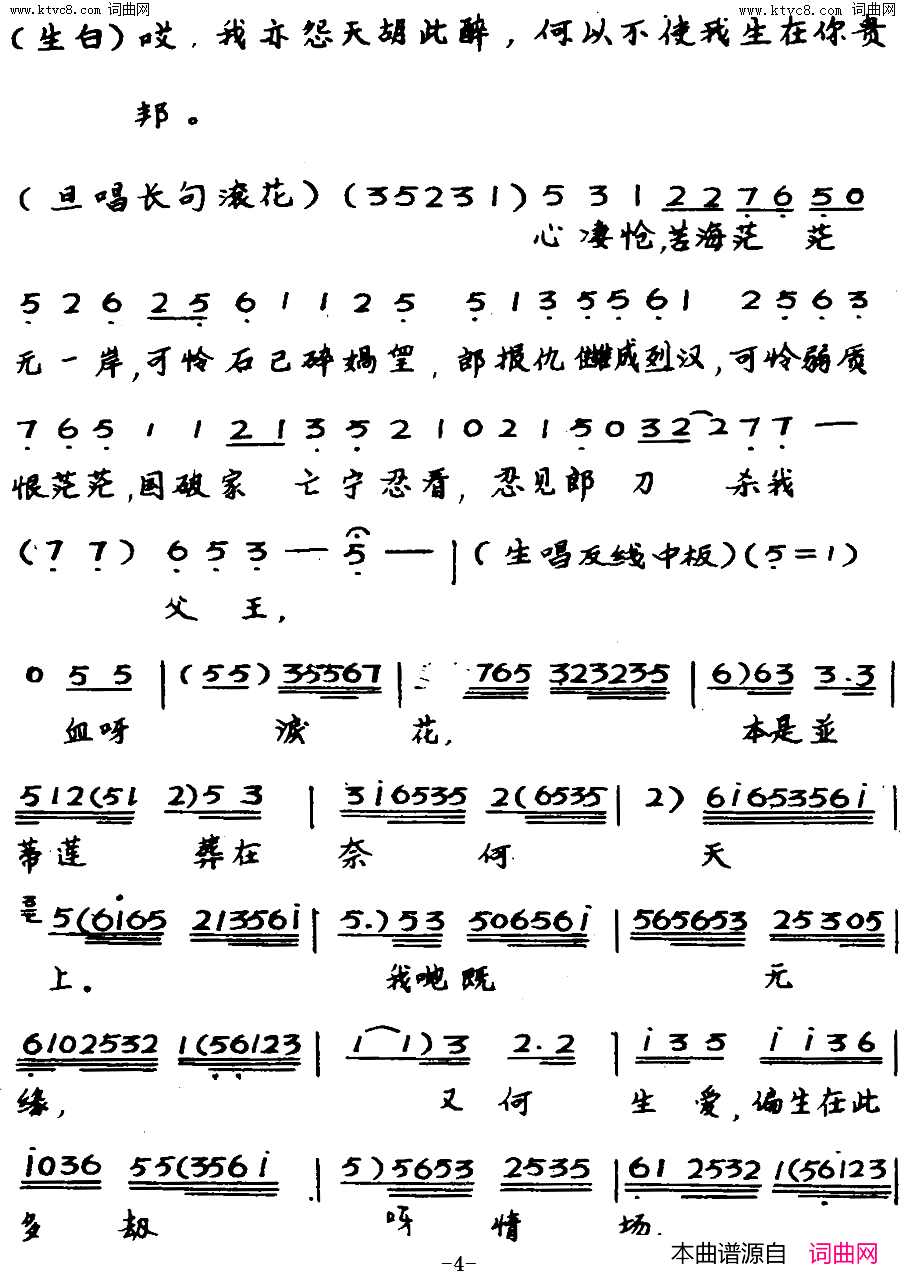 www.ktvc8.com 词曲网 www.ktvc8.com 词曲网
(生白)哎.我亦怨天胡此醉,何以不使我生在你贵
邦。
(旦唱长句滚花)(35231)5 3 1 22 76 50
心凄怆,苦海茫 茫
5 2 6 25 6 1 1 2 5 5 1 3 5 5 6 1 2 5 6 3
无一岸,可怜石已碎娲皇,郎报仇雠成烈汉,可怜弱质
7 6 5 1 1 21 3 5 2 1 0 2 1 5 0 32 2 7 7 —
恨茫茫,国破家 亡宁忍看,忍见郎 刀 杀我
(7 7) 6 5 3 — 5 — | (生唱反线中板)(5=1)
父 王,
0 5 5 | (55)35567 | 765 323235 | 6)63 3.3 |
血呀 淚 花, 本是並
512(51 2)5 3 | 3i6535 2(6535 | 2) 6i65356i |
蒂莲 葬在 奈 何 天
5(6i65 21356i | 5.)53 50656i | 565653 25305 |
上。 我哋既 无
6102532 1(56123 | 1 1)3 2.2 | i35 ii36 |
缘, 又何 生爱,偏生在此
i036 55(356i | 5)5653 2535 | 61 2532 1(56123 |
多 劫 呀 情 场.
-4-
本曲谱源自 词曲网